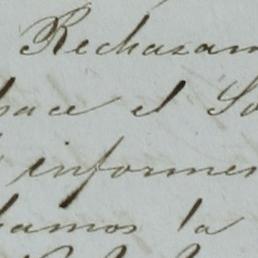 Rechazam
hace el So
informes
hamos la